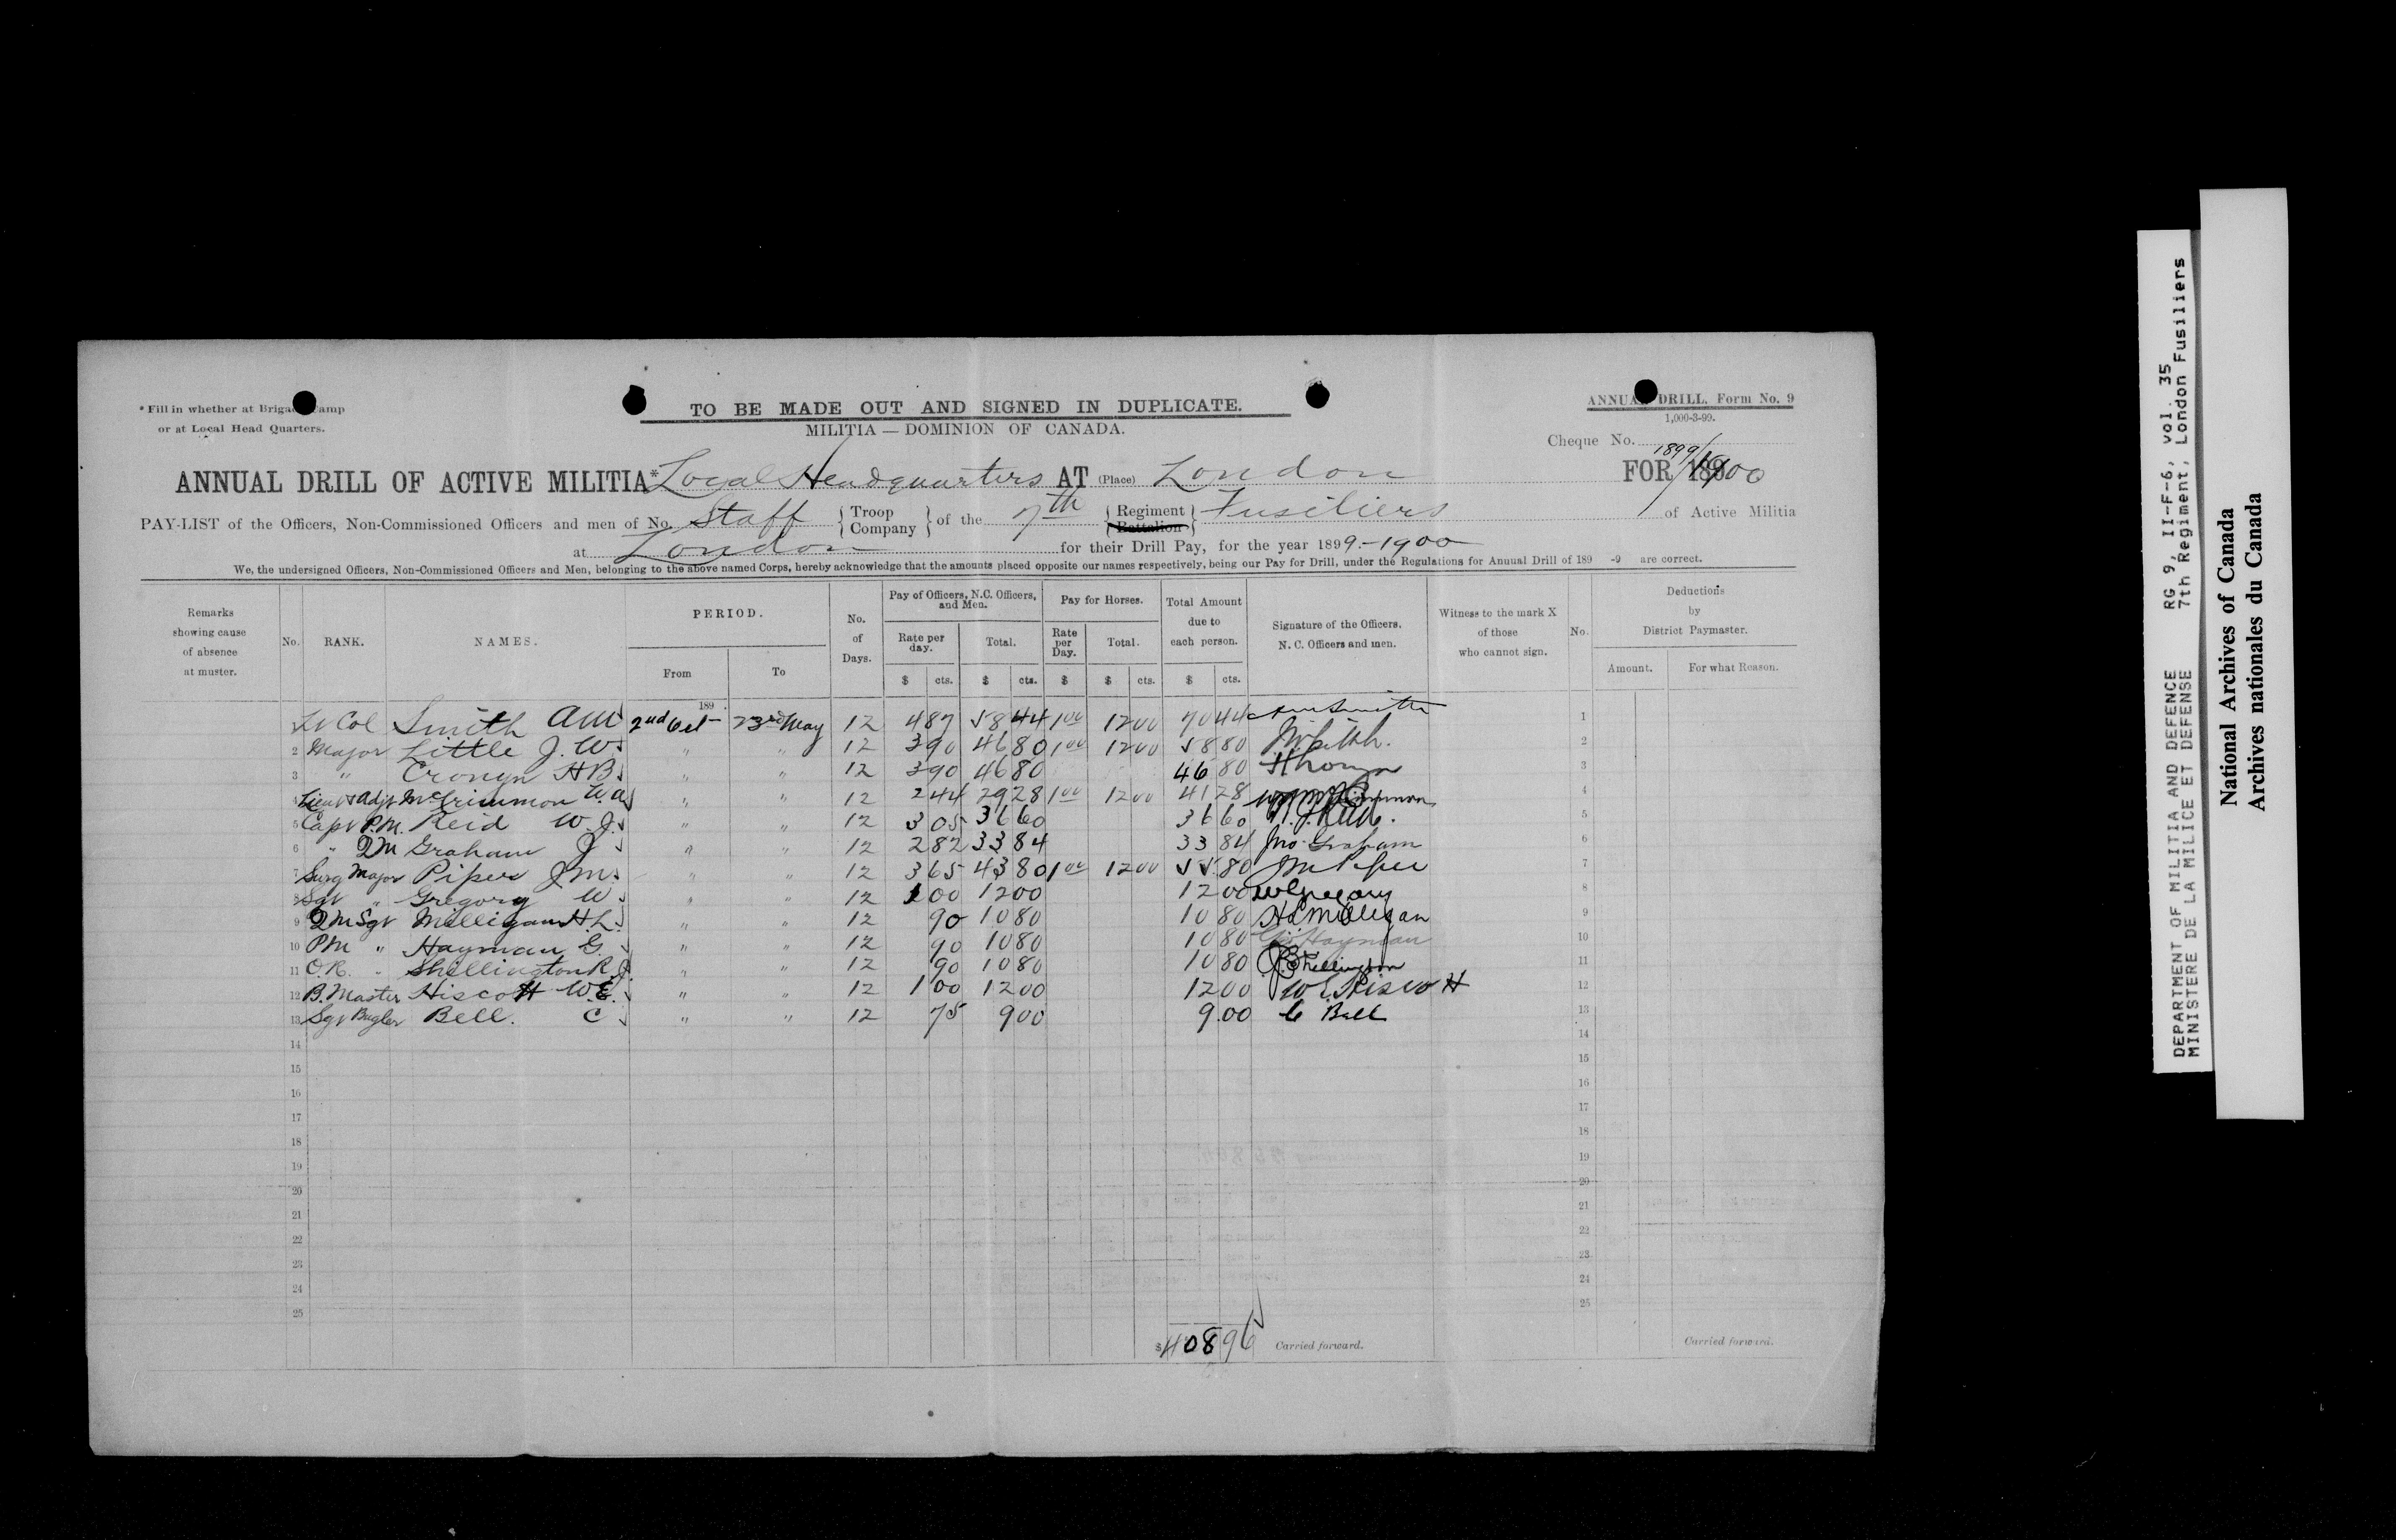 * Fill in whether at Brigade Camp
or at Local Head Quarters.
TO BE MADE OUT AND SIGNED IN DUPLICATE.
MILITIA — DOMINION OF CANADA.
ANNUAL DRILL. Form No. 9
1,000-3-99.
Cheque No.
ANNUAL DRILL OF ACTIVE MILITIA* Local Headquarters AT (Place) London FOR 1899/1900
PAY-LIST of the Officers, Non-Commissioned Officers and men of No. Staff { Troop Company } of the 7th { Regiment Battalion } Fusiliers of Active Militia
at London for their Drill Pay, for the year 1899-1900
We, the undersigned Officers, Non-Commissioned Officers and Men, belonging to the above named Corps, hereby acknowledge that the amounts placed opposite our names respectively, being our Pay for Drill, under the Regulations for Annual Drill of 189 -9 are correct.
Remarks showing cause of absence at muster. No. RANK. NAMES. PERIOD. From To No. of Days. Pay of Officers, N.C. Officers, and Men. Rate per day. $ cts. Total. $ cts. Pay for Horses. Rate per Day. $ Total. $ cts. Total Amount due to each person. $ cts. Signature of the Officers, N. C. Officers and men. Witness to the mark X of those who cannot sign. No. Deductions by District Paymaster. Amount. For what Reason.
189
Lt Col Smith AM 2nd Oct 23rd May 12 4 87 58 44 1 00 12 00 70 44 AM Smith 1
2 Major Little J. W. " " 12 3 90 46 80 1 00 12 00 58 80 J W Little 2
3 " Cronyn H B. " " 12 3 90 46 80 46 80 H Cronyn 3
4 Lieut & Adjt McCrimmon W. A " " 12 2 44 29 28 1 00 12 00 41 28 McCrimmon 4
5 Capt P.M. Reid W. J. " " 12 3 05 36 60 36 60 W. J. Reid. 5
6 " QM Graham J " " 12 2 82 33 84 33 84 Jno Graham 6
7 Surg Major Piper J M. " " 12 3 65 43 80 1 00 12 00 55 80 J M Piper 7
8 Sgt " Gregory W " " 12 1 00 12 00 12 00 W Gregory 8
9 QM Sgt Milligan H. L. " " 12 90 10 80 10 80 H L Milligan 9
10 PM " Hayman G. " " 12 90 10 80 10 80 G Hayman 10
11 O.R. " Shellington R. J " " 12 90 10 80 10 80 Shellington 11
12 B. Master Hiscott W. E. " " 12 1 00 12 00 12 00 W E Hiscott 12
13 Sgt Bugler Bell. C " " 12 75 9 00 9 00 C Bell 13
14 14
15 15
16 16
17 17
18 18
19 19
20 20
21 21
22 22
23 23
24 24
25 25
$ 408 96 Carried forward. Carried forward.
DEPARTMENT OF MILITIA AND DEFENCE RG 9, II-F-6, vol. 35
MINISTERE DE LA MILICE ET DEFENSE 7th Regiment, London Fusiliers
National Archives of Canada
Archives nationales du Canada